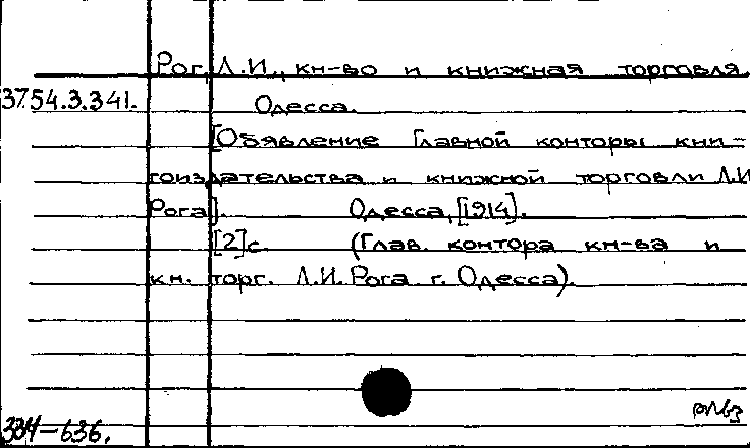 Рог, Л.И., кн-во и книжная торговля.
37.54.3.341.
Одесса.
[Обявление Главной конторы кни-
гоиздательства и книжной торговли Л.И.
Рога]. Одесса, [1914].
[2]с. (Глав. контора кн-ва и
кн. торг. Л.И. Рога г. Одесса).
334-636.